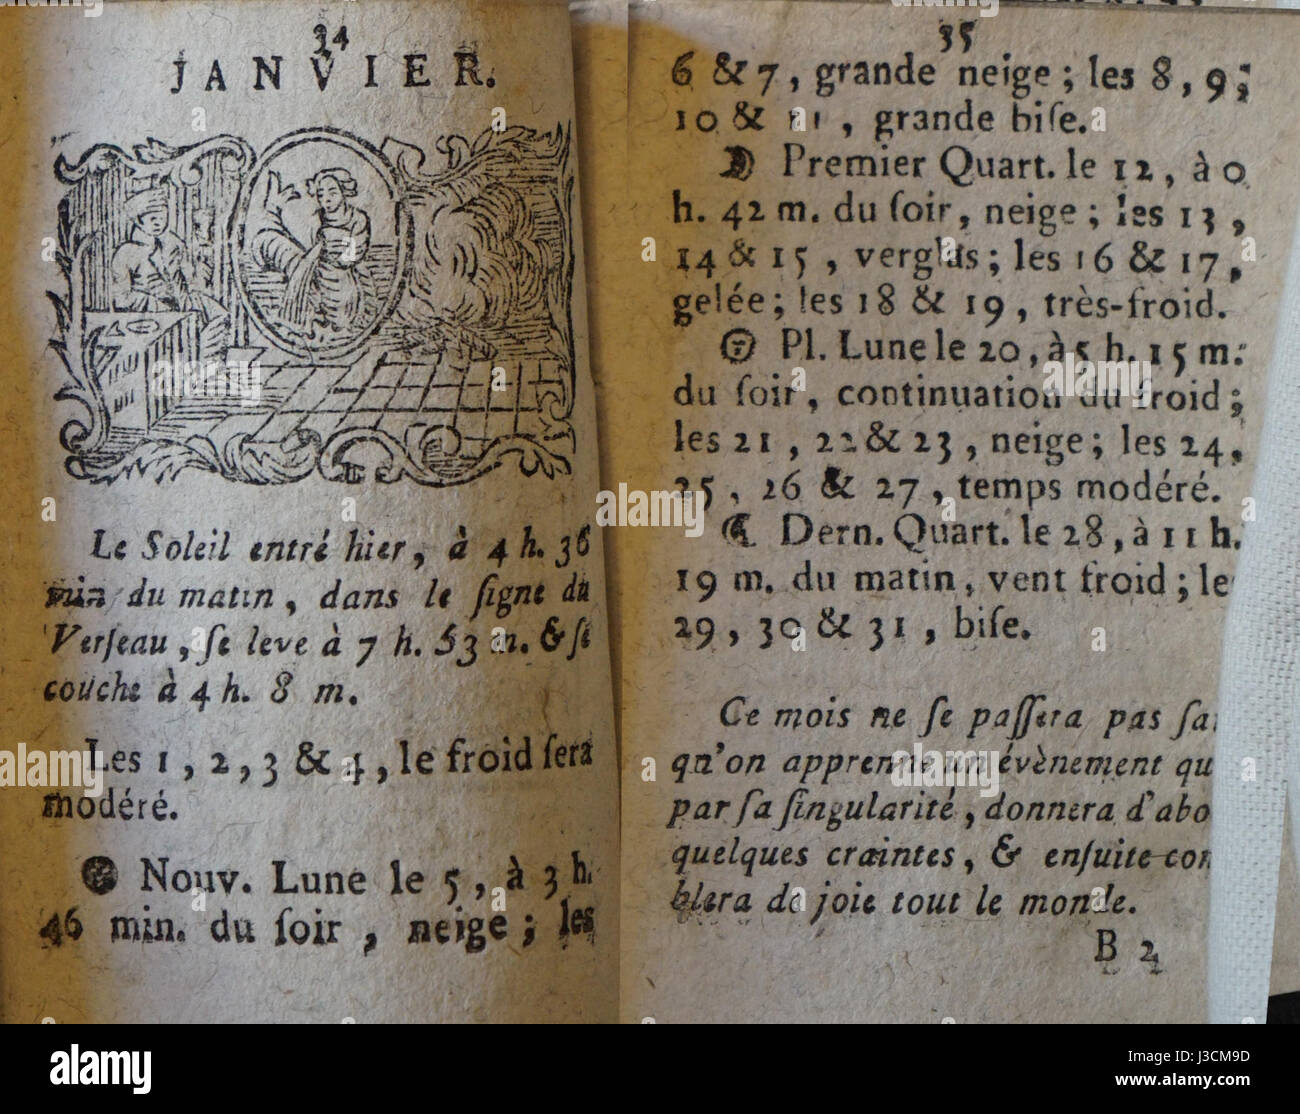 34
JANVIER.
Le Soleil entré hier, à 4 h. 36
min du matin, dans le ſigne du
Verſeau, ſe leve à 7 h. 53 m. & ſe
couche à 4 h. 8 m.
Les 1, 2, 3 & 4, le froid ſera
modéré.
Nouv. Lune le 5, à 3 h.
46 min. du ſoir, neige; les
35
6 & 7, grande neige; les 8, 9,
10 & 11, grande biſe.
Premier Quart. le 12, à 0
h. 42 m. du ſoir, neige; les 13,
14 & 15, verglas; les 16 & 17,
gelée; les 18 & 19, très-froid.
Pl. Lune le 20, à 5 h. 15 m.
du ſoir, continuation du froid;
les 21, 22 & 23, neige; les 24,
25, 26 & 27, temps modéré.
Dern. Quart. le 28, à 11 h.
19 m. du matin, vent froid; le
29, 30 & 31, biſe.
Ce mois ne ſe paſſera pas
qu'on apprenne un évènement qu
par ſa ſingularité, donnera d'abo
quelques craintes, & enſuite com
blera de joie tout le monde.
B 2
alamy
www.alamy.com
Image ID: J3CM9D